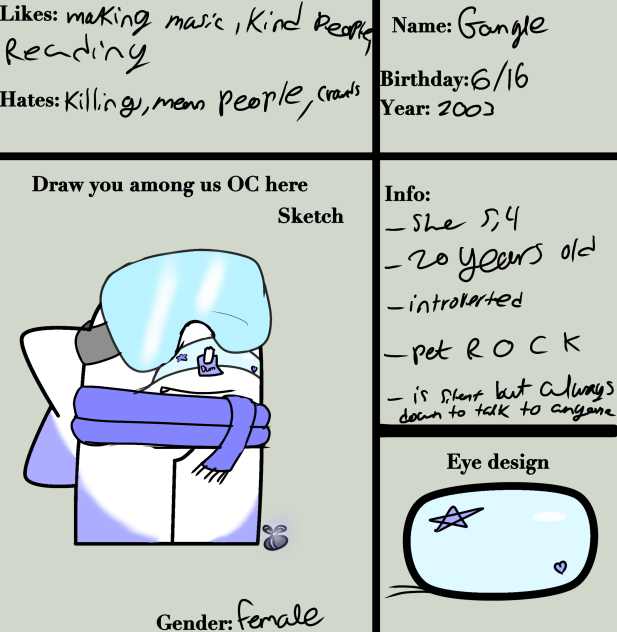 Likes: making music, Kind people,
Reading
Hates: Killing, mean people, crowds
Name: Gangle
Birthday: 6/16
Year: 2003
Draw you among us OC here
Sketch
Dum
Gender: female
Info:
- She 5,4
- 20 years old
- introverted
- pet R O C K
- is silent but always
down to talk to anyone
Eye design